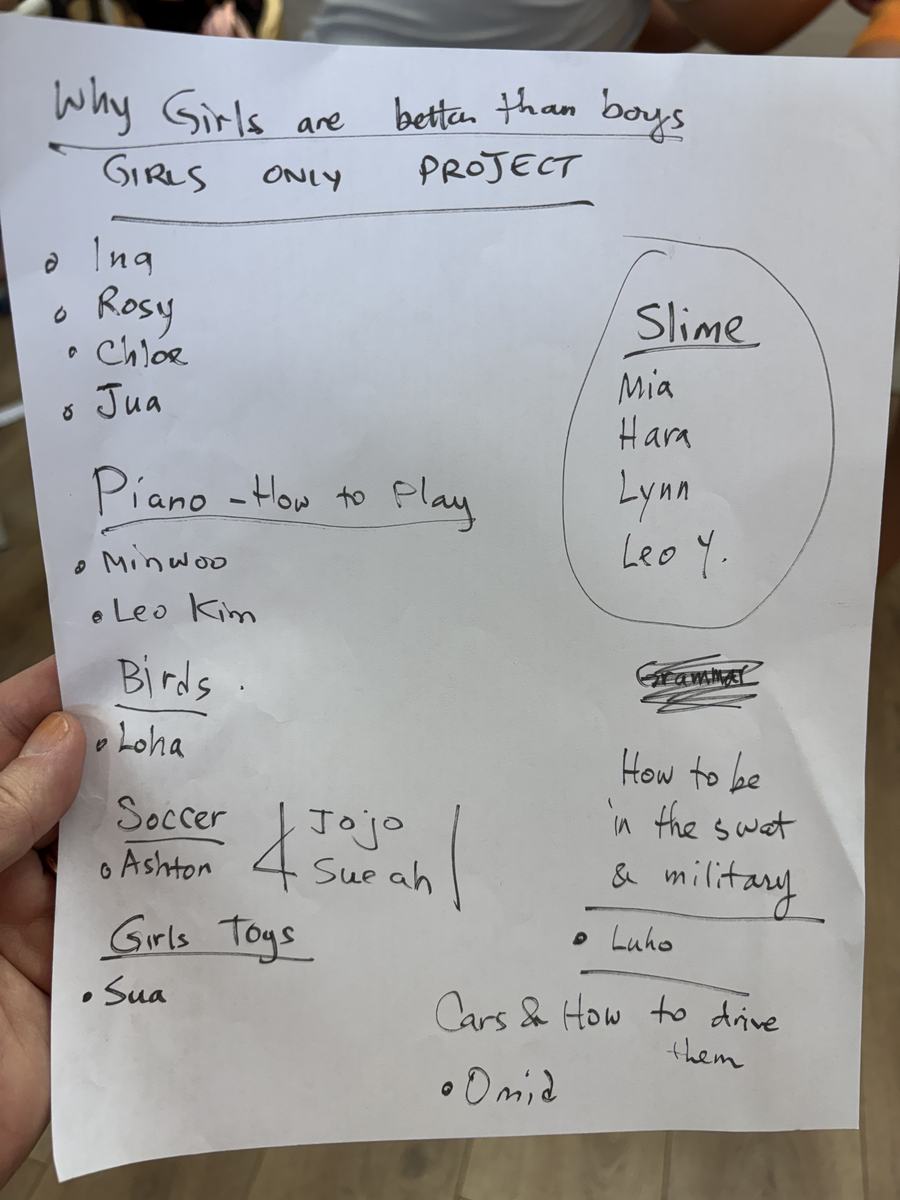 Why Girls are better than boys
GIRLS ONLY PROJECT
Ina
Rosy
Chloe
Jua
Slime
Mia
Hara
Lynn
Leo Y.
Piano - How to Play
Minwoo
Leo Kim
Birds.
Loha
Grammar
Soccer
Ashton
Jojo
Sueah
Girls Toys
Sua
How to be
in the swat
& military
Luho
Cars & How to drive
them
Omid